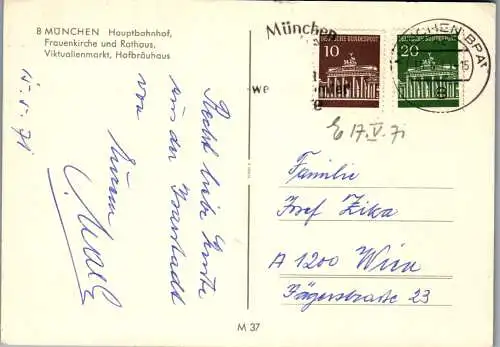 8 MÜNCHEN Hauptbahnhof,
Frauenkirche und Rathaus,
Viktualienmarkt, Hofbräuhaus
15.5.71
Recht liebe Grüße
aus der Isarstadt
von
Eurem
München
we
DEUTSCHE BUNDESPOST
10
DEUTSCHE BUNDESPOST
20
15
8
E 17.V.71
Familie
Josef Zika
A 1200 Wien
Jägerstraße 23
M 37